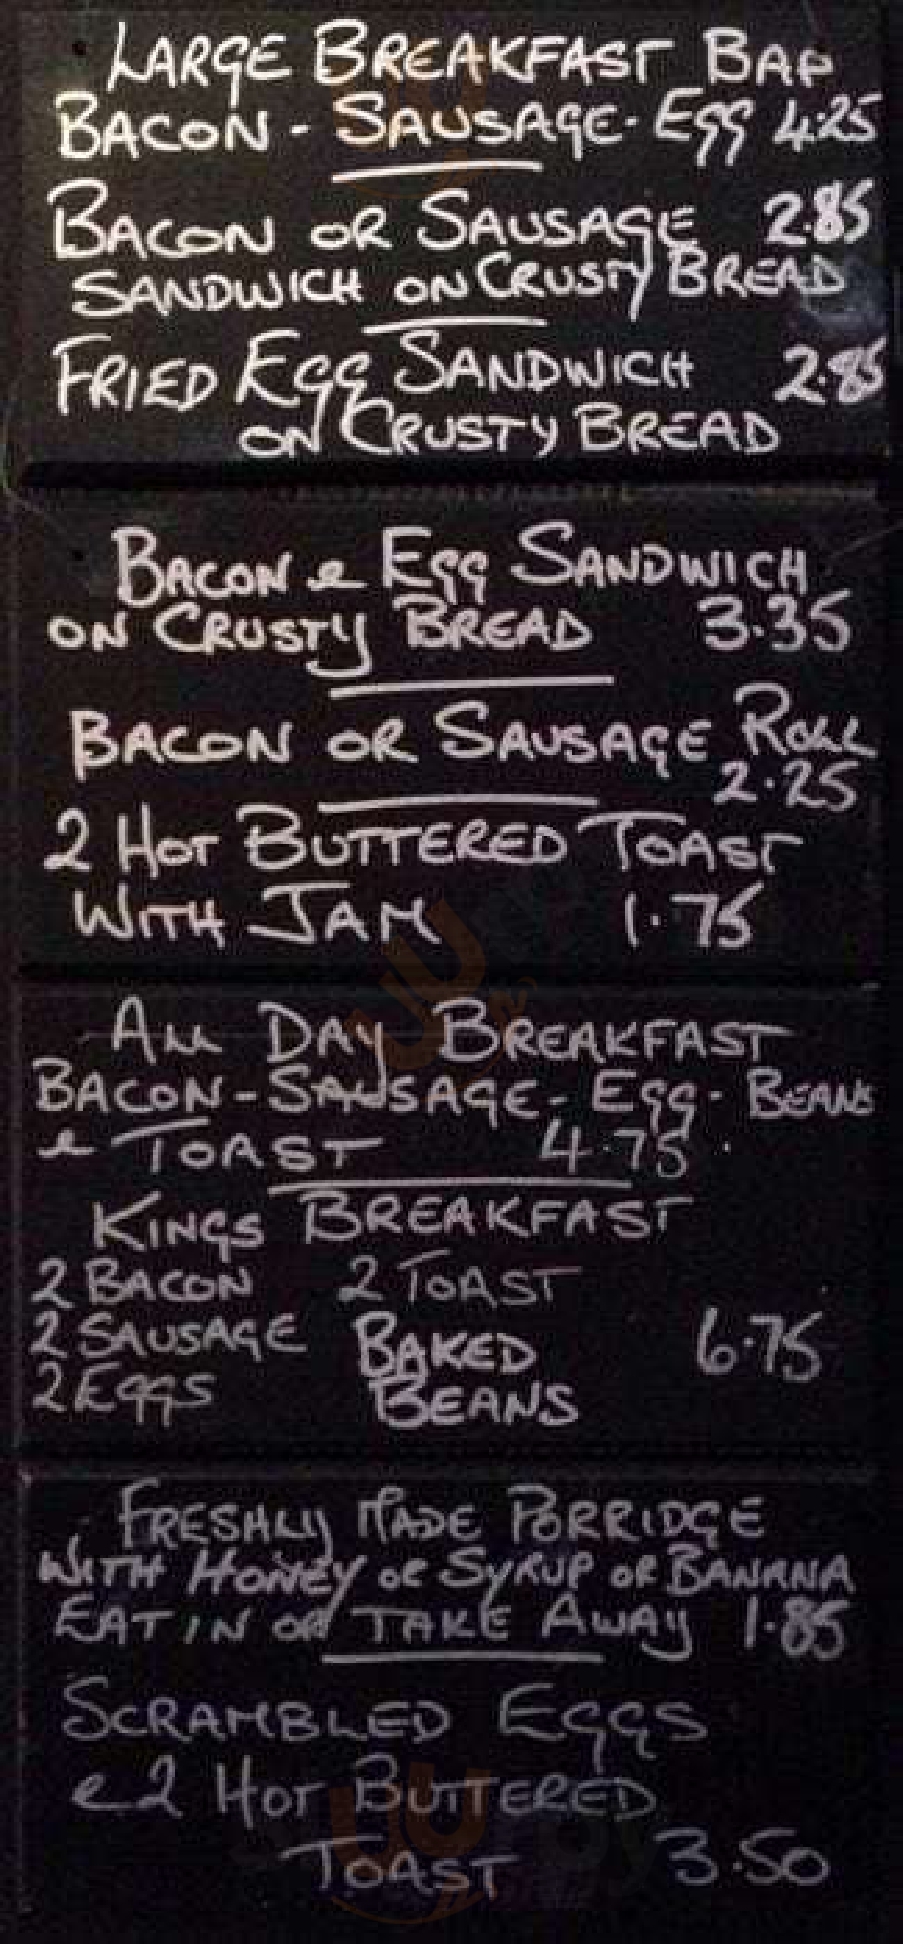 LARGE BREAKFAST BAP
BACON - SAUSAGE - EGG 4.25
BACON OR SAUSAGE 2.85
SANDWICH ON CRUSTY BREAD
FRIED EGG SANDWICH 2.85
ON CRUSTY BREAD
BACON & EGG SANDWICH
ON CRUSTY BREAD 3.35
BACON OR SAUSAGE ROLL
2.25
2 HOT BUTTERED TOAST
WITH JAM 1.75
ALL DAY BREAKFAST
BACON - SAUSAGE - EGG - BEANS
& TOAST 4.75
KINGS BREAKFAST
2 BACON 2 TOAST
2 SAUSAGE BAKED 6.75
2 EGGS BEANS
FRESHLY MADE PORRIDGE
WITH HONEY OR SYRUP OR BANANA
EAT IN OR TAKE AWAY 1.85
SCRAMBLED EGGS
& 2 HOT BUTTERED
TOAST 3.50